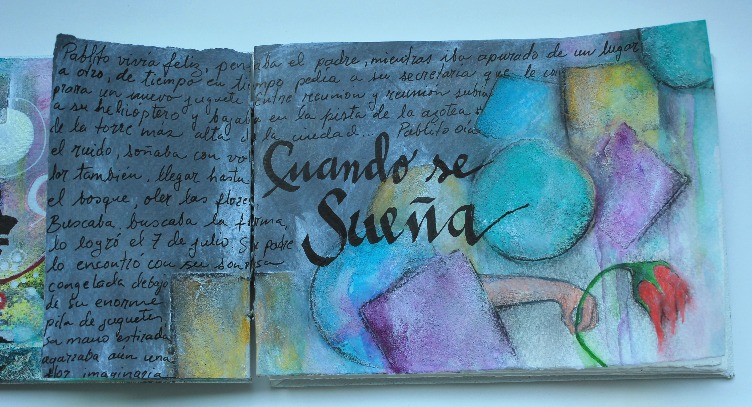 Pablito vivía feliz, pensaba el padre, mientras iba apurado de un lugar
a otro, de tiempo en tiempo pedía a su secretaria que le com
prara un nuevo juguete entre reunión y reunión subía
a su helicóptero y bajaba en la pista de la azotea
de la torre más alta de la ciudad... Pablito oía
el ruido, soñaba con vo
lar también, llegar hasta
el bosque, oler las flores
Buscaba, buscaba la forma,
lo logró el 7 de julio. Su padre
lo encontró con su sonrisa
congelada debajo
de su enorme
pila de juguetes
su mano estirada
agarraba aún una
flor imaginaria
Cuando se
Sueña